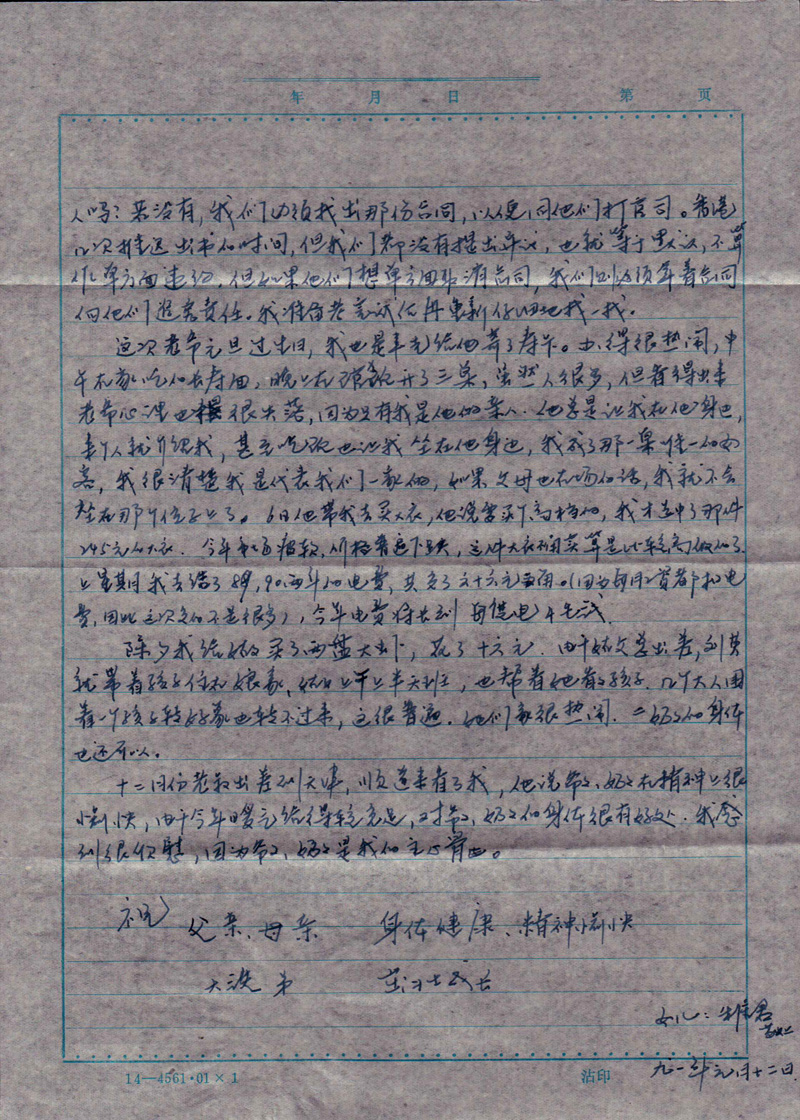 年 月 日 第 页
人吗？若没有，我们必须找出那份合同，以便同他们打官司。香港
几次推迟出书的时间，但我们都没有提出异议，也就等于默认，不算
作单方面违约。但如果他们想单方面取消合同，我们则必须拿着合同
向他们追究责任。我准备考完试后再重新仔细地找一找。
这次老爷元旦过生日，我也是事先给他寄了寿卡。办得很热闹，中
午在家吃的长寿面，晚上在 开了三桌，虽然人很多，但看得出来
老爷心里也很失落，因为只有我是他的亲人。他总是让我在他身边，
来个人就介绍我，甚至吃饭也让我坐在他身边，我成了那一桌唯一的女
我很清楚我是代表我们一家的，如果父母也在场的话，我就不会
坐在那个位子上了。6日他带我去买大衣，他说要买个高档的，我才选中了那件
245元的大衣。今年市场疲软，价格普遍下跌，这件大衣 算是比较高级的了。
上星期我去结了89,90两年的电费，共交了六十六元 （因为每月工资都扣电
费，因此这次交的不是很多），今年电费将长到每
除夕我给奶奶买了两盘大虾，花了十六元。由于 总出差，刘
就带着孩子住在娘家， 上午上半天班，也帮着她看孩子。几个大人围
着一个孩子转好象也转不过来，这很普遍。她们家很热闹。二奶奶的身体
也还可以。
十二月份老叔出差到天津，顺道来看了我，他说爷爷、奶奶在精神上很
愉快，由于今年暖气给得较充足，对爷爷、奶奶的身体很有好处。我感
到很欣慰，因为爷爷、奶奶是我的主心骨。
祝
父亲、母亲 身体健康、精神愉快
大 弟 茁壮成长
女儿：
九一年元月十二日
14—4561·01×1 沽印